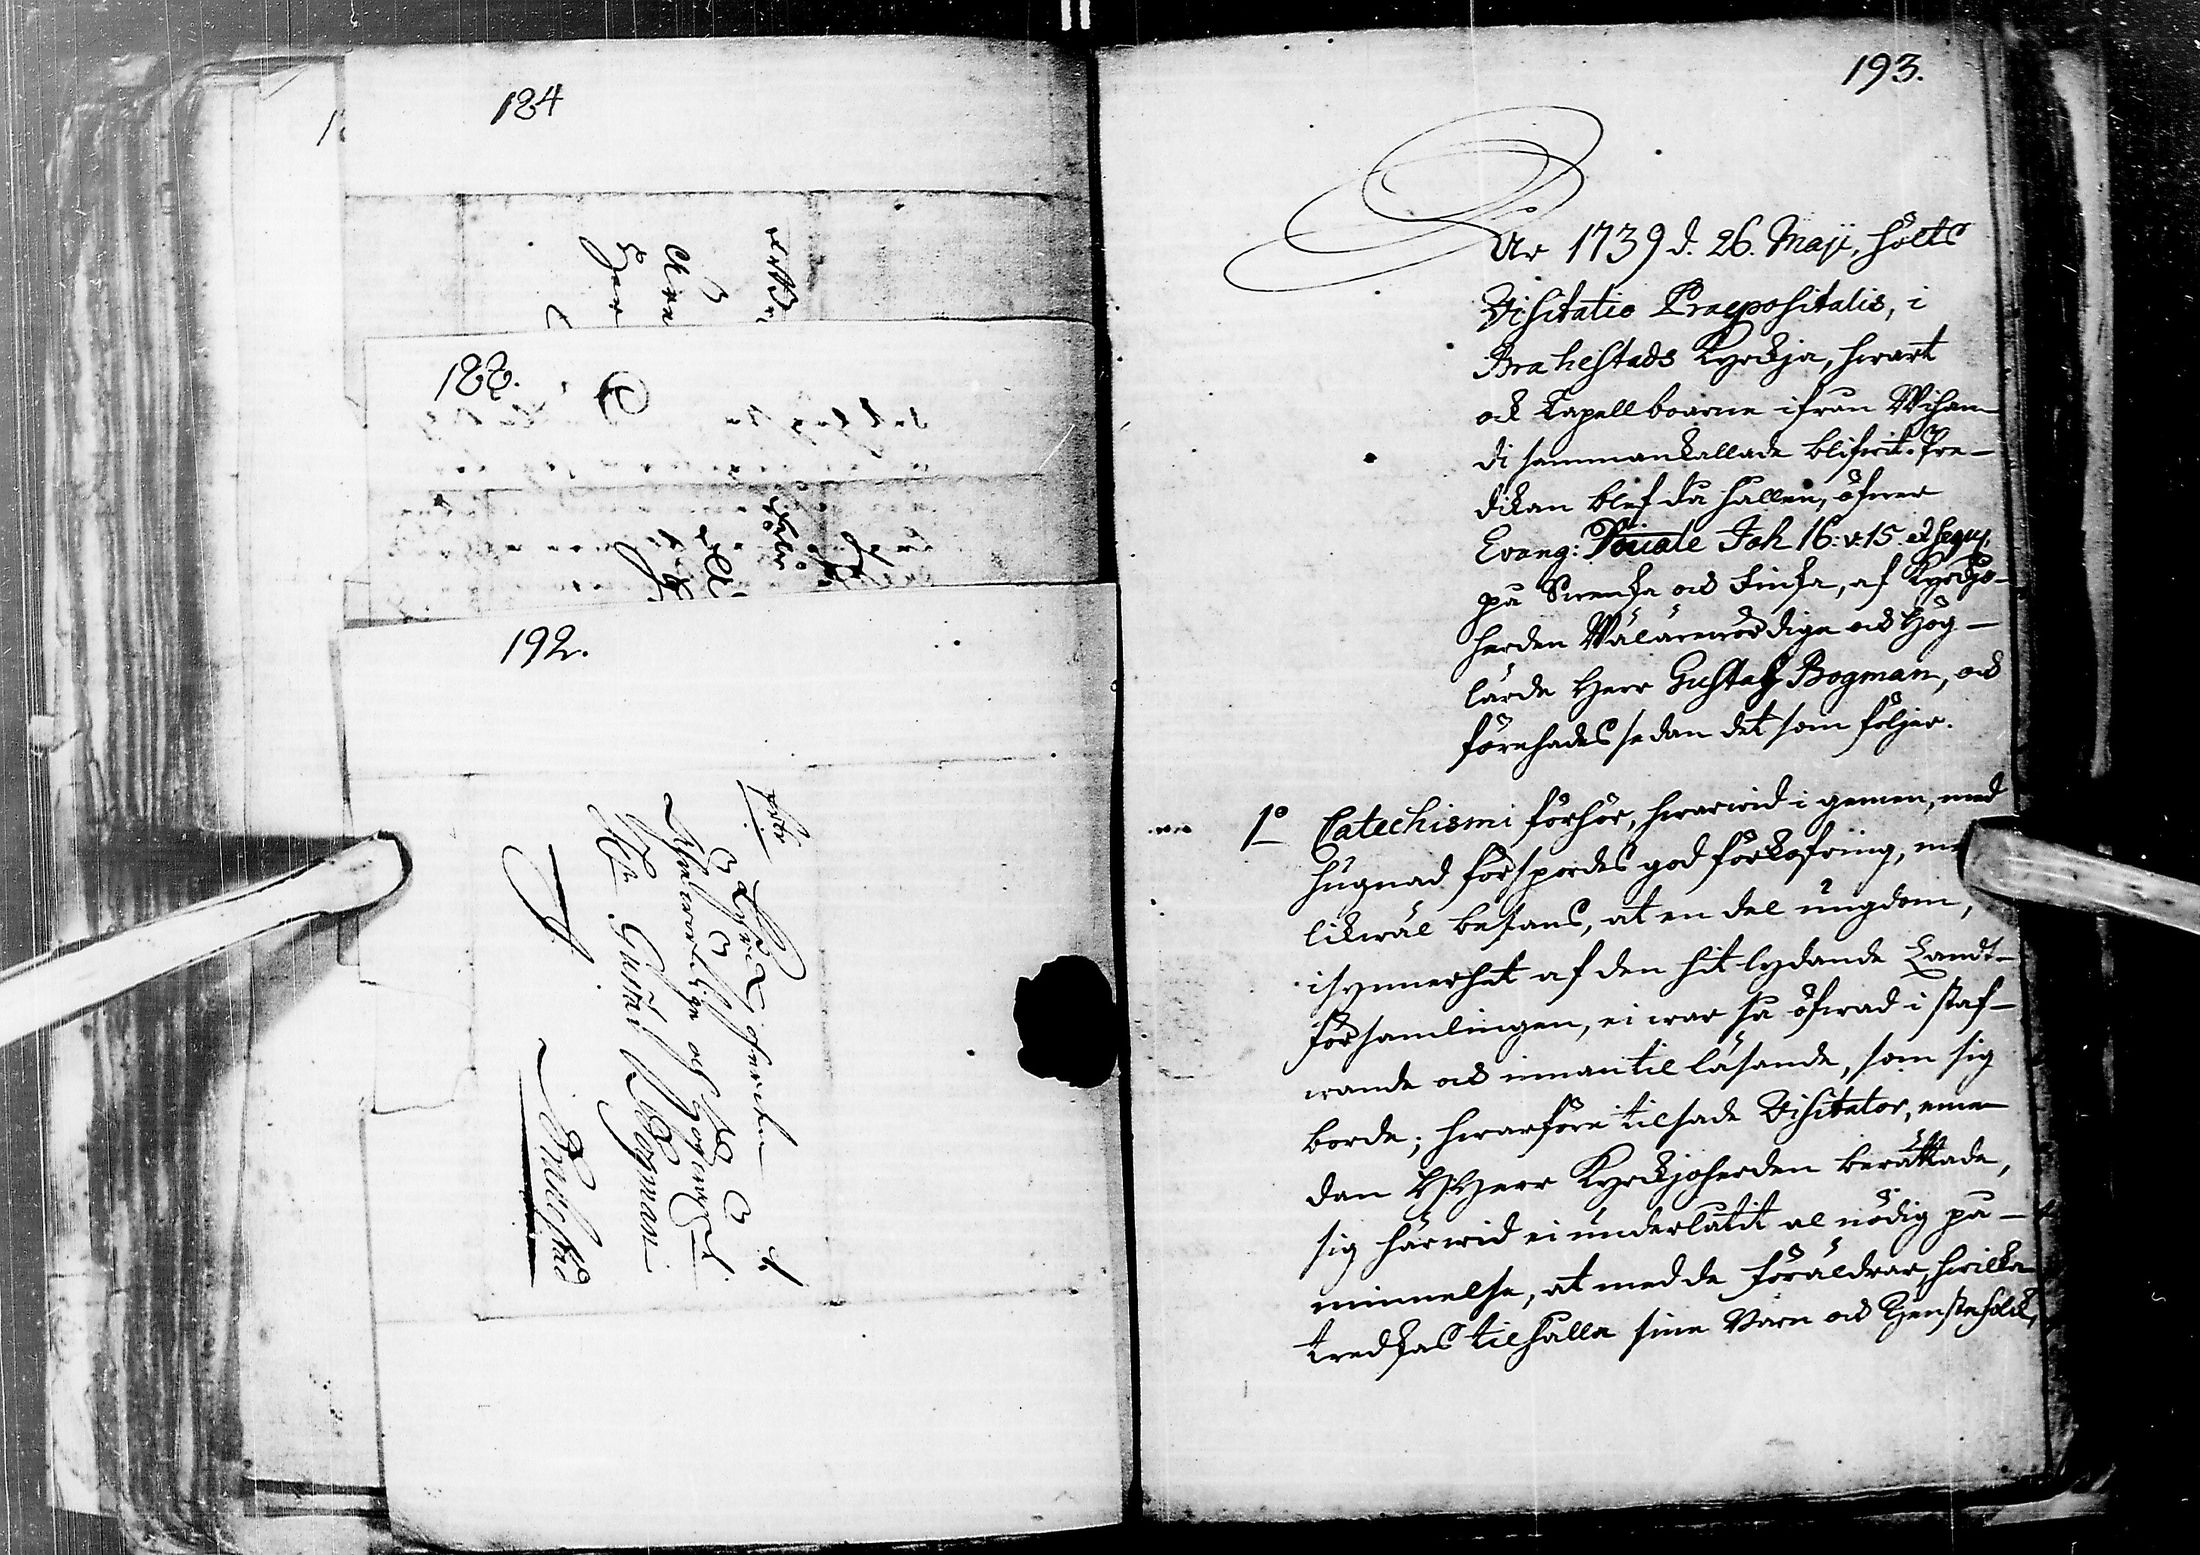 184
188.
192.
Kyrckioherden
Herr Gustav Bogman
Brahestad
193.
År 1739 d. 26. Maji, hölts
Visitatio Praepositalis, i
Brahestads Kyrckja, hwart
ock Capellboarne ifrån Wihan-
di sammankallade blifwit. Pre-
dikan blef då hållen, öfwer
Evang: Joh 16: v: 15. et sequ,
på Swenska och Finska, af Kyrckjo-
herden Wälärewördige och Hög-
lärde Herr Gustaf Bogman, och
förehades sedan det som följer.
1o Catechismi förhör, hwarwid i gemen, med
hugnad förspordes god förkofring,
likwäl befans, at en del ungdom,
isynnerhet af den hit lydande Landt-
församlingen, ei war så öfwad i staf-
wande och innantil läsande, som sig
borde; hwarföre tilsade Visitator, eme-
dan Herr Kyrckjoherden berättade,
sig härwid ei underlåtit al nödig på-
minnelse, at med de föräldrar, hwilka
tredskas tilhålla sine Barn och Tjenstefolck,